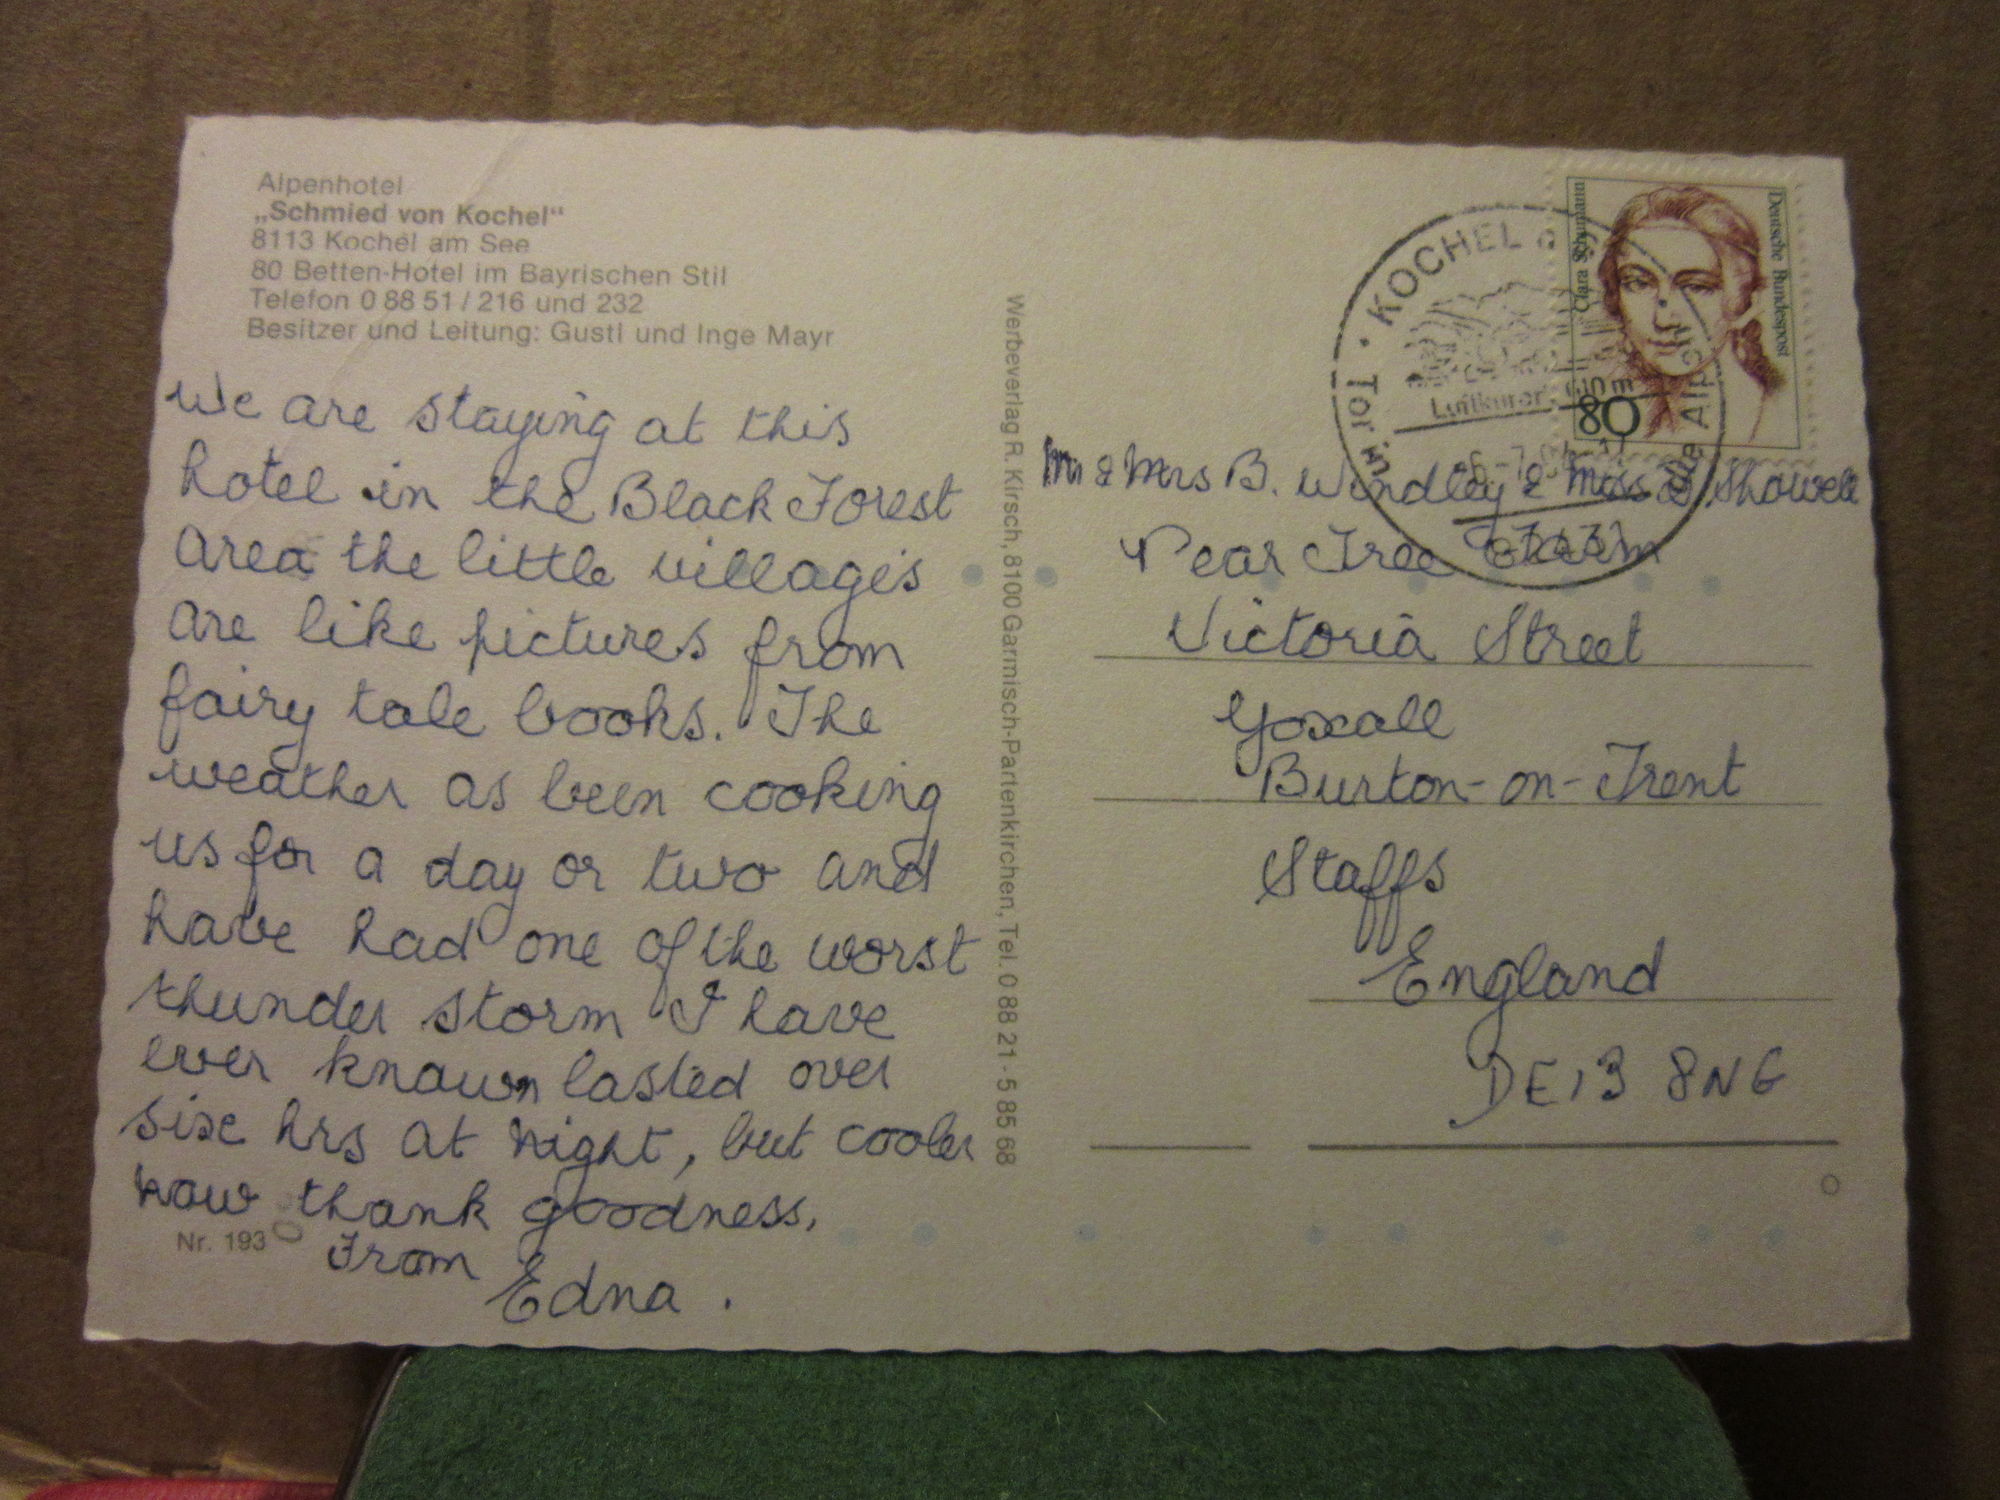 Alpenhotel
„Schmied von Kochel“
8113 Kochel am See
80 Betten-Hotel im Bayrischen Stil
Telefon 0 88 51 / 216 und 232
Besitzer und Leitung: Gustl und Inge Mayr
We are staying at this
hotel in the Black Forest
area the little villages
are like pictures from
fairy tale books. The
weather as been cooking
us for a day or two and
have had one of the worst
thunder storm I have
ever known lasted over
six hrs at night, but cooler
now thank goodness.
From
Edna.
Nr. 193
Werbeverlag R. Kirsch, 8100 Garmisch-Partenkirchen, Tel. 0 88 21 - 5 85 68
Clara Schumann
Deutsche Bundespost
80
KOCHEL a
Tor in die Alpen
Luftkurort
Mr & Mrs B. Windley & Miss Showell
Pear Tree
Victoria Street
Yoxall
Burton-on-Trent
Staffs
England
DE13 8NG